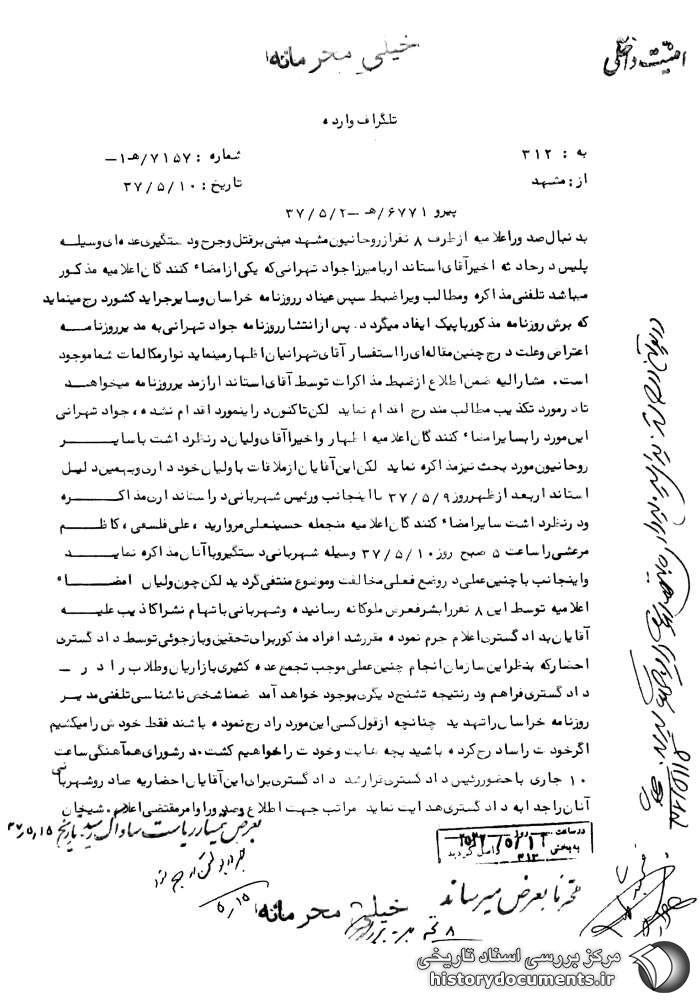 خیلی محرمانه
امنیت داخلی
تلگراف وارده
به : ۳۱۲
شماره : ۷۱۵۷/ه‍ ۱ـ
از : مشهد
تاریخ : ۳۷/۵/۱۰
پیرو ۶۷۷۱/ه‍ ـ ۳۷/۵/۲
بدنبال صدور اعلامیه از طرف ۸ نفر از روحانیون مشهد مبنی بر قتل و جرح و دستگیری عده‌ای وسیله
پلیس در حادثه اخیر آقای استاندار با میرزا جواد تهرانی که یکی از امضاء کنندگان اعلامیه مذکور
میباشد تلفنی مذاکره و مطالب ویرا ضبط سپس عینا در روزنامه خراسان و سایر جراید کشور درج مینماید
که برش روزنامه مذکور با پیک ایفاد میگردد. پس از انتشار روزنامه جواد تهرانی به مدیر روزنامه
اعتراض و علت درج چنین مقاله‌ای را استفسار آقای تهرانیان اظهار مینماید نوار مکالمات شما موجود
است. مشارالیه ضمن اطلاع از ضبط مذاکرات توسط آقای استاندار از مدیر روزنامه میخواهد
تا در مورد تکذیب مطالب مندرج اقدام نماید لکن تاکنون در اینمورد اقدام نشده، جواد تهرانی
این مورد را بسایر امضاء کنندگان اعلامیه اظهار و اخیرا آقای ولیان در نظر داشت با سایر
روحانیون مورد بحث نیز مذاکره نماید لکن این آقایان از ملاقات با ولیان خودداری و بهمین دلیل
استاندار بعد از ظهر روز ۳۷/۵/۹ با اینجانب و رئیس شهربانی در استانداری مذاکره
و در نظر داشت سایر امضاء کنندگان اعلامیه منجمله حسینعلی مروارید، علی فلسفی، کاظم
مرعشی را ساعت ۵ صبح روز ۳۷/۵/۱۰ وسیله شهربانی دستگیر و با آنان مذاکره نماید
و اینجانب با چنین عملی در وضع فعلی مخالفت و موضوع منتفی گردید لکن چون ولیان امضاء
اعلامیه توسط این ۸ نفر را بشرفعرض ملوکانه رسانیده و شهربانی باتهام نشر اکاذیب علیه
آقایان بدادگستری اعلام جرم نموده مقرر شد افراد مذکور برای تحقیق و بازجوئی توسط دادگستری
احضار که بنظر این سازمان انجام چنین عملی موجب تجمع عده کثیری بازاریان و طلاب را در ـ
دادگستری فراهم و در نتیجه تشنج دیگری بوجود خواهد آمد ضمنا شخص ناشناسی تلفنی مدیر
روزنامه خراسان را تهدید چنانچه از قول کسی این مورد را درج نموده باشند فقط خودش را میکشیم
اگر خودت را سا درج کرده باشید بچه هایت و خودت را خواهیم کشت. در شورای هم‌آهنگی ساعت
۱۰ جاری با حضور رئیس دادگستری قرار شد دادگستری برای این آقایان احضاریه صادر و شهربانی
آنان را جدا به دادگستری هدایت نماید مراتب جهت اطلاع و صدور اوامر مقتضی اعلام. شیخان
بعرض تیمسار ریاست ساواک رسید. بتاریخ ۳۷/۵/۱۵
۵/۱۵
در ساعت روز
به بخش ۳۱۲ واصل گردید
متمنا بعرض میرساند
خیلی محرمانه
مرکز بررسی اسناد تاریخی
historydocuments.ir